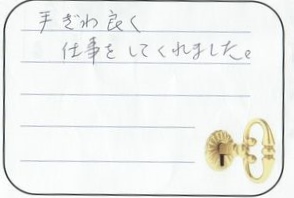 手ぎわ良く
仕事をしてくれました。